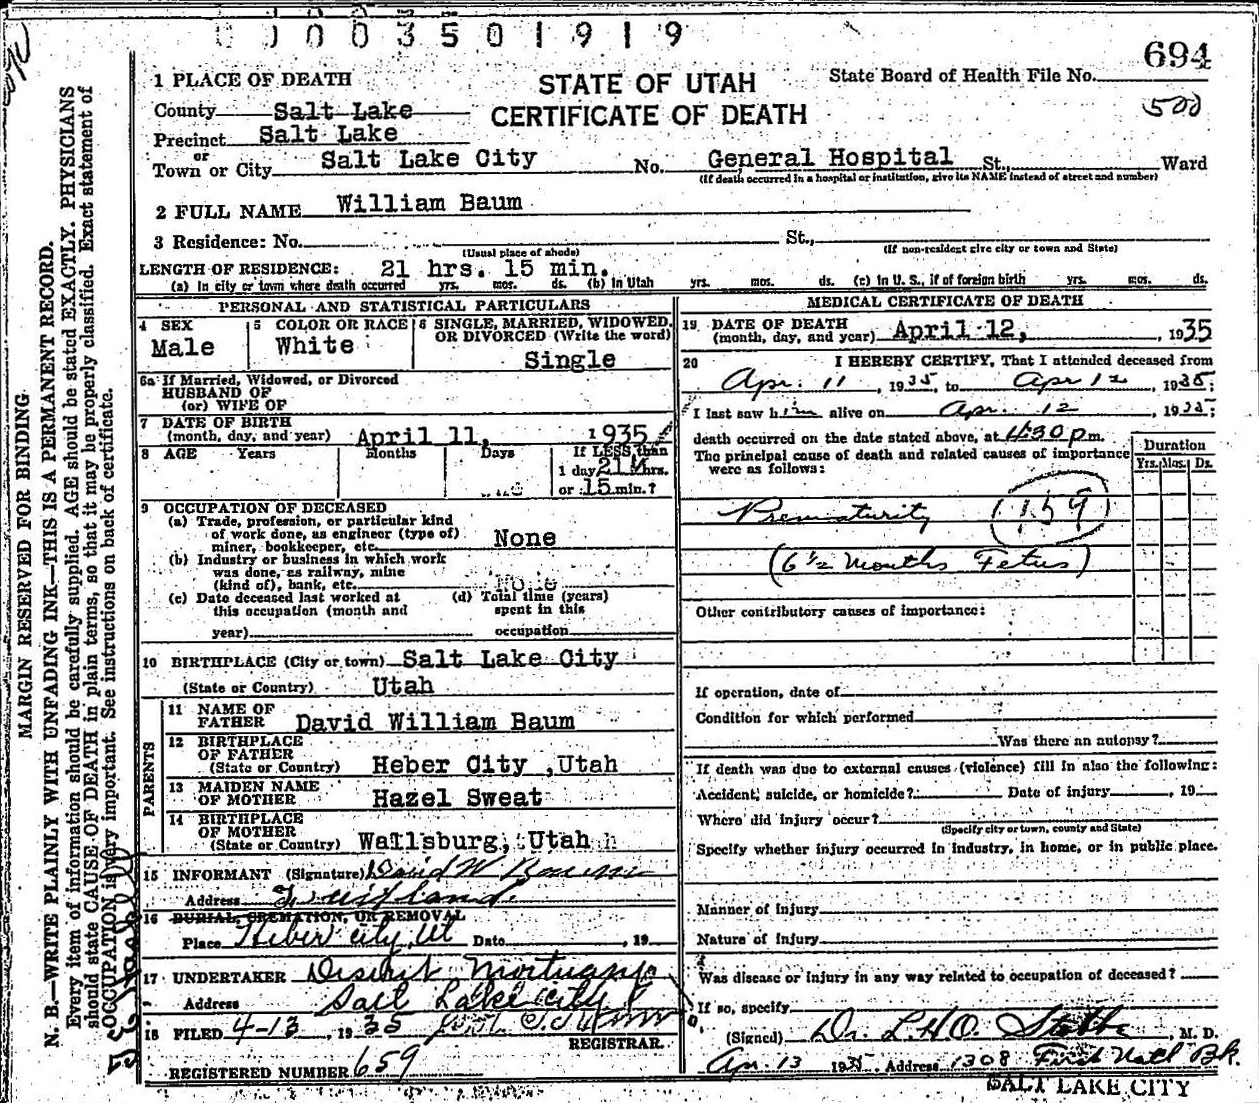 0 0 0 3 5 0 1 9 1 9
694
1 PLACE OF DEATH
STATE OF UTAH
CERTIFICATE OF DEATH
State Board of Health File No.
500
County Salt Lake
Precinct Salt Lake
or
Town or City Salt Lake City No. General Hospital St., Ward
(If death occurred in a hospital or institution, give its NAME instead of street and number)
2 FULL NAME William Baum
3 Residence: No. St.,
(Usual place of abode) (If non-resident give city or town and State)
LENGTH OF RESIDENCE: 21 hrs. 15 min.
(a) In city or town where death occurred yrs. mos. ds. (b) In Utah yrs. mos. ds. (c) In U. S., if of foreign birth yrs. mos. ds.
PERSONAL AND STATISTICAL PARTICULARS
4 SEX
Male
5 COLOR OR RACE
White
6 SINGLE, MARRIED, WIDOWED,
OR DIVORCED (Write the word)
Single
6a If Married, Widowed, or Divorced
HUSBAND OF
(or) WIFE OF
7 DATE OF BIRTH
(month, day, and year) April 11, 1935
8 AGE Years Months Days If LESS than
1 day 21 hrs.
or 15 min.?
9 OCCUPATION OF DECEASED
(a) Trade, profession, or particular kind
of work done, as engineer (type of)
miner, bookkeeper, etc. None
(b) Industry or business in which work
was done, as railway, mine
(kind of), bank, etc. None
(c) Date deceased last worked at
this occupation (month and
year)
(d) Total time (years)
spent in this
occupation
10 BIRTHPLACE (City or town) Salt Lake City
(State or Country) Utah
PARENTS
11 NAME OF
FATHER David William Baum
12 BIRTHPLACE
OF FATHER
(State or Country) Heber City ,Utah
13 MAIDEN NAME
OF MOTHER Hazel Sweat
14 BIRTHPLACE
OF MOTHER
(State or Country) Wallsburg, Utah
15 INFORMANT (Signature) David W Baum
Address Fruitland
16 BURIAL, CREMATION, OR REMOVAL
Place Heber City, Ut Date , 19
17 UNDERTAKER Deseret Mortuary
Address Salt Lake City
18 FILED 4-13, 1935
REGISTRAR
REGISTERED NUMBER 659
MEDICAL CERTIFICATE OF DEATH
19 DATE OF DEATH
(month, day, and year) April 12, 1935
20 I HEREBY CERTIFY, That I attended deceased from
Apr. 11, 1935, to Apr 12, 1935;
I last saw him alive on Apr. 12, 1935;
death occurred on the date stated above, at 4:30 p m.
The principal cause of death and related causes of importance
were as follows:
Duration
Yrs. Mos. Ds.
Prematurity (159)
(6 1/2 Months Fetus)
Other contributory causes of importance:
If operation, date of
Condition for which performed
Was there an autopsy?
If death was due to external causes (violence) fill in also the following:
Accident, suicide, or homicide? Date of injury , 19
Where did injury occur?
(Specify city or town, county and State)
Specify whether injury occurred in industry, in home, or in public place.
Manner of injury
Nature of injury
Was disease or injury in any way related to occupation of deceased?
If so, specify
(Signed) Dr. L.H.O. Stobbe, M. D.
Apr. 13 1935 Address 1308 First Natl Bk.
SALT LAKE CITY
MARGIN RESERVED FOR BINDING.
N. B.—WRITE PLAINLY WITH UNFADING INK—THIS IS A PERMANENT RECORD.
Every item of information should be carefully supplied. AGE should be stated EXACTLY. PHYSICIANS
should state CAUSE OF DEATH in plain terms, so that it may be properly classified. Exact statement of
OCCUPATION is very important. See instructions on back of certificate.